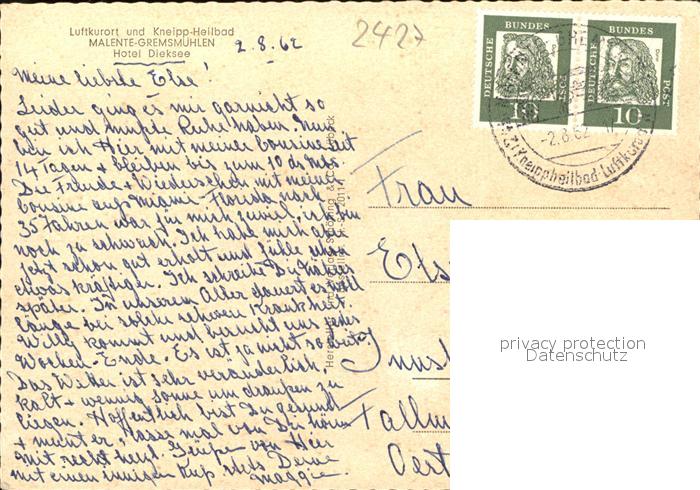 Luftkurort und Kneipp-Heilbad
MALENTE-GREMSMÜHLEN
Hotel Dieksee
2.8.62
2427
Meine liebste Else!
Leider ging es mir garnicht so
gut und mußte Ruhe haben. Nun
bin ich Hier mit meiner Cousine seit
14 Tagen + bleiben bis zum 10 ds Mts.
Die Freude + Wiedersehen mit meiner
Cousine aus Miami-Florida nach
35 Jahren war für mich zuviel, ich bin
noch zu schwach. Ich habe mich aber
jetzt schon gut erholt und fühle schon
etwas kräftiger. Ich schreibe Dir näheres
später. In unserem Alter dauert es
lange bei solche schweren Krankheit.
Willy kommt und besucht uns jedes
Wochen-Ende. Es ist ja nicht so weit.
Das Wetter ist sehr veränderlich,
kalt + wenig Sonne um draußen zu
liegen. Hoffentlich bist Du gesund
+ munter, lasse mal von Dir hören
mit recht herzl. Grüßen von Hier
mit einem innigen Kuß stets Deine
Maggie.
DEUTSCHE BUNDESPOST
10
DEUTSCHE BUNDESPOST
10
-2.8.62
Kneippheilbad-Luftkurort
Frau
Els
privacy protection
Datenschutz